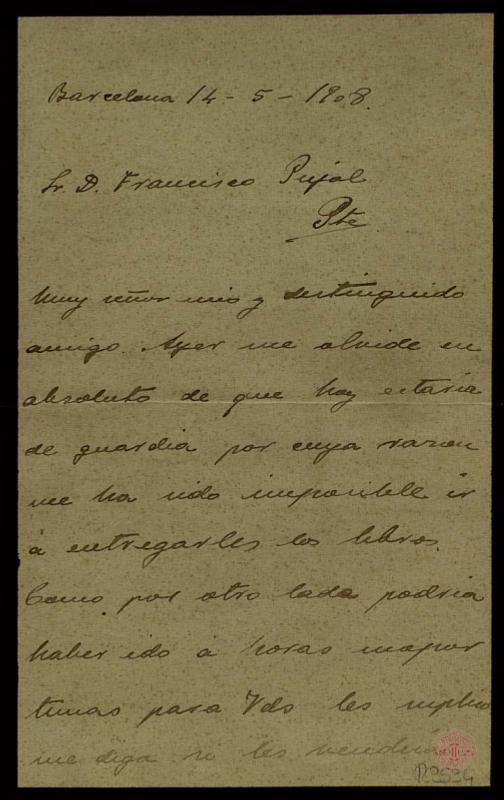 Barcelona 14 - 5 - 1908.
Sr. D. Francisco Pujol
Pte
Muy señor mio y distinguido
amigo. Ayer me olvide en
absoluto de que hoy estaria
de guardia por cuya razon
me ha sido imposible ir
á entregarles los libros.
Como por otro lado podria
haber ido á horas inopor
tunas para Vds les suplico
me diga si les vendria